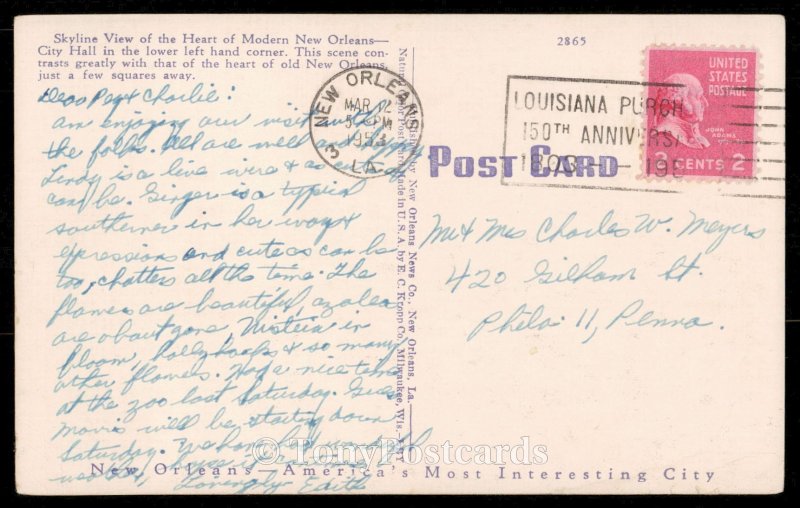 Skyline View of the Heart of Modern New Orleans—
City Hall in the lower left hand corner. This scene con-
trasts greatly with that of the heart of old New Orleans,
just a few squares away.
2865
Dear Peg & Charlie:
am enjoying our visit with
the folks. All are well
Lindy is a live wire & as
can be. Ginger is a typical
southerner in her ways &
expressions and cute as can be
too, chatters all the time. The
flowers are beautiful, azaleas
are about gone, Wisteria in
bloom, hollyhocks & so many
other flowers. Had a nice time
at the zoo last Saturday. Guess
Morris will be starting down
Saturday. We have had wonderful
Lovingly Edith
NEW ORLEANS
MAR 12
PM
1953
3
LA.
LOUISIANA PURCH
150TH ANNIVERSA
1803 — 195
UNITED
STATES
POSTAGE
JOHN
ADAMS
2 CENTS 2
POST CARD
Published by New Orleans News Co., New Orleans, La.
Natural Color Post Card Made in U. S. A. by E. C. Kropp Co., Milwaukee, Wis.
Mr & Mrs Charles W. Meyers
420 Gilham St.
Phila 11, Penna.
© TonyPostcards
New Orleans—America's Most Interesting City